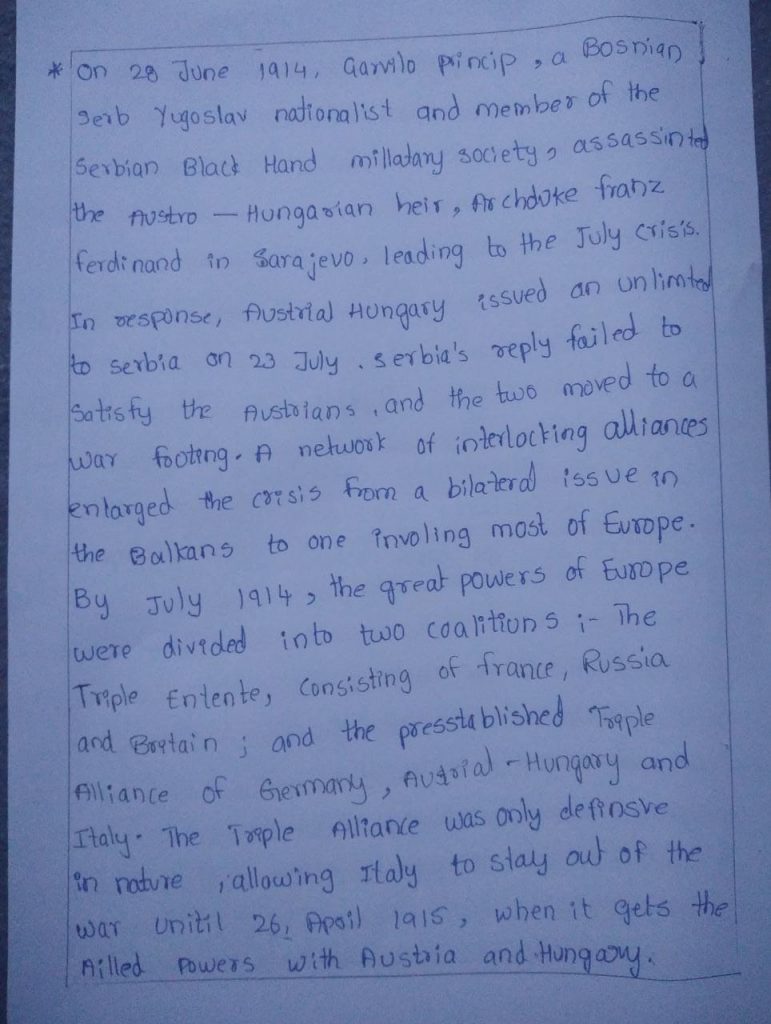 * On 28 June 1914, Garvilo princip, a Bosnian
Serb Yugoslav nationalist and member of the
Serbian Black Hand millatary society, assassinted
the Austro - Hungarian heir, Archduke franz
ferdinand in Sarajevo, leading to the July crisis.
In response, Austrial Hungary issued an unlimted
to serbia on 23 July. serbia's reply failed to
Satisfy the Austrians, and the two moved to a
war footing. A network of interlocking alliances
enlarged the crisis from a bilateral issue in
the Balkans to one involing most of Europe.
By July 1914, the great powers of Europe
were divided into two coalitions ;- The
Triple Entente, consisting of france, Russia
and Britain ; and the presstablished Triple
Alliance of Germany, Austrial - Hungary and
Italy. The Triple Alliance was only definsve
in nature, allowing Italy to stay out of the
war unitil 26, April 1915, when it gets the
Ailled Powers with Austria and Hungary.